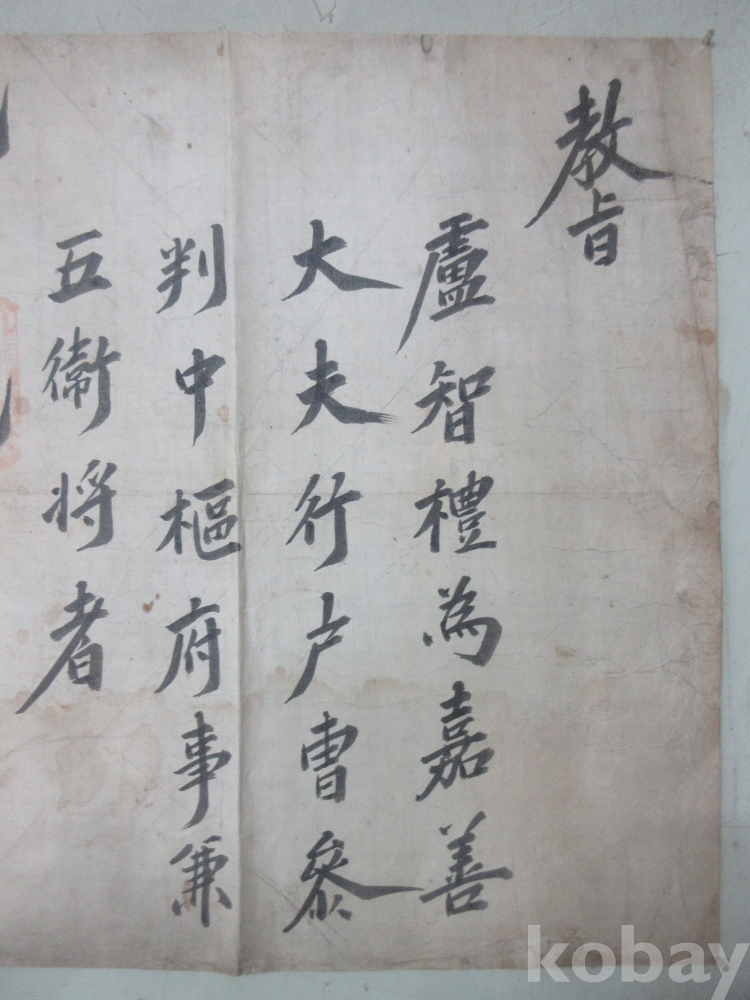 教旨
盧智禮為嘉善
大夫行户曺叅
判中樞府事兼
五衛将者
kobay